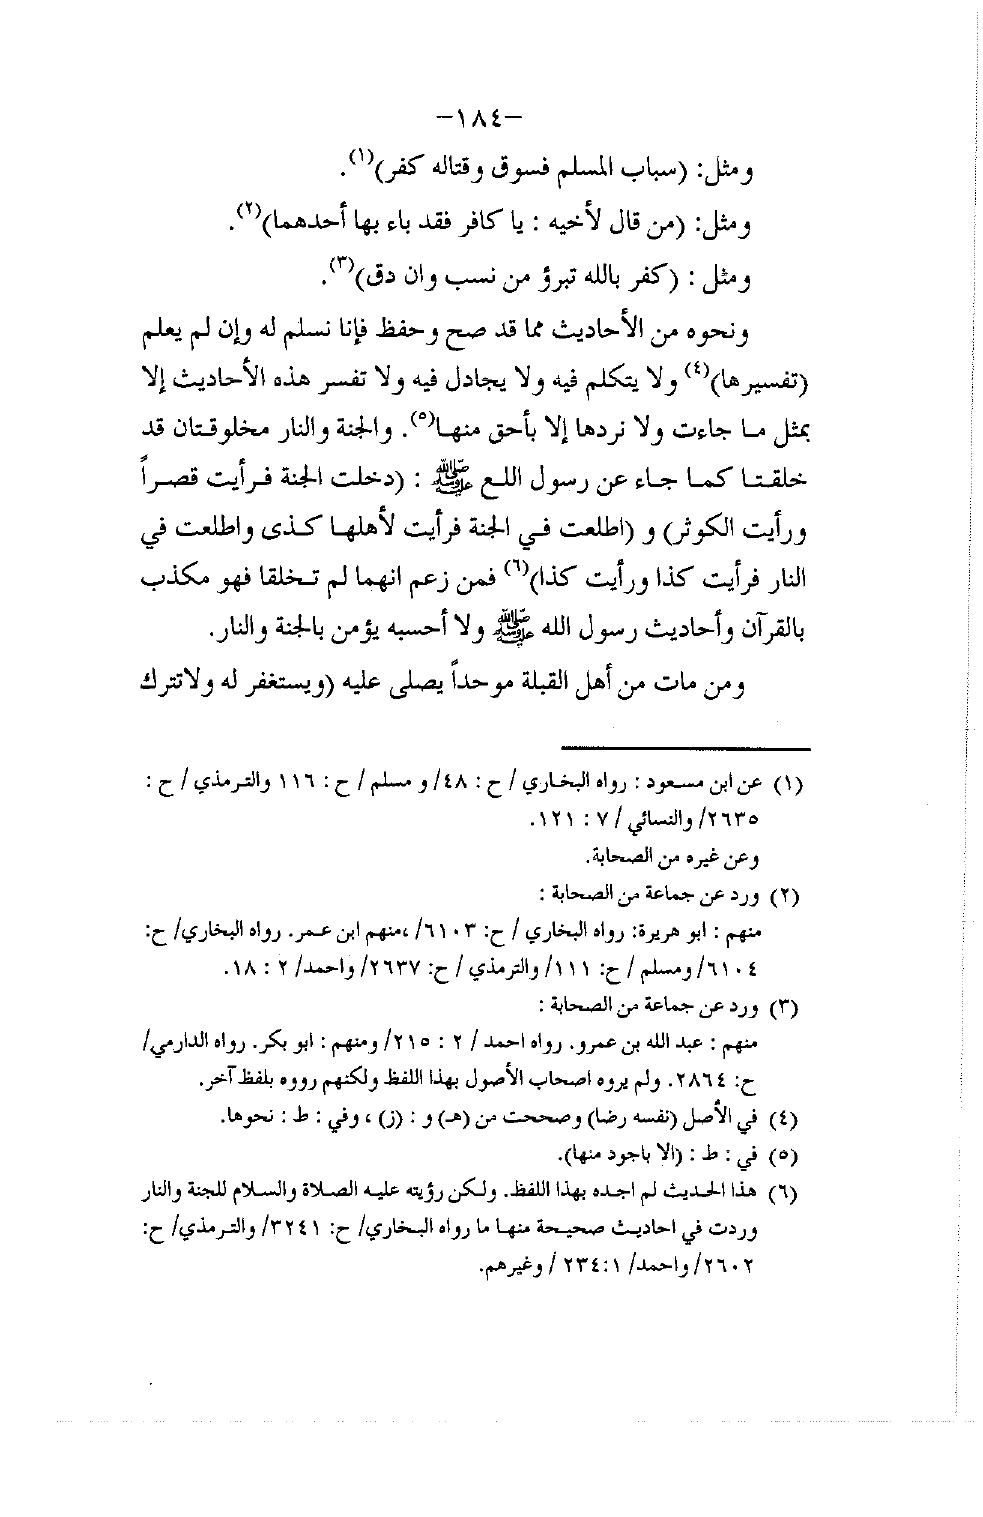 -١٨٤-
ومثل: (سباب المسلم فسوق وقتاله كفر)(١).
ومثل: (من قال لأخيه : يا كافر فقد باء بها أحدهما)(٢).
ومثل : (كفر بالله تبرؤ من نسب وان دق)(٣).
ونحوه من الأحاديث مما قد صح وحفظ فإنا نسلم له وإن لم يعلم
(تفسيرها)(٤) ولا يتكلم فيه ولا يجادل فيه ولا تفسر هذه الأحاديث إلا
بمثل ما جاءت ولا نردها إلا بأحق منها(٥). والجنة والنار مخلوقتان قد
خلقتا كما جاء عن رسول اللع ﷺ : (دخلت الجنة فرأيت قصراً
ورأيت الكوثر) و (اطلعت في الجنة فرأيت لأهلها كذى واطلعت في
النار فرأيت كذا ورأيت كذا)(٦) فمن زعم انهما لم تخلقا فهو مكذب
بالقرآن وأحاديث رسول الله ﷺ ولا أحسبه يؤمن بالجنة والنار.
ومن مات من أهل القبلة موحداً يصلى عليه (ويستغفر له ولاتترك
(١) عن ابن مسعود : رواه البخاري / ح : ٤٨/ و مسلم / ح : ١١٦ والترمذي / ح :
٢٦٣٥/ والنسائي / ٧ : ١٢١.
وعن غيره من الصحابة.
(٢) ورد عن جماعة من الصحابة :
منهم : ابو هريرة: رواه البخاري / ح: ٦١٠٣/ ،منهم ابن عمر. رواه البخاري/ ح:
٦١٠٤/ ومسلم / ح: ١١١/ والترمذي / ح: ٢٦٣٧/ واحمد/ ٢ : ١٨.
(٣) ورد عن جماعة من الصحابة :
منهم : عبد الله بن عمرو. رواه احمد / ٢ : ٢١٥/ ومنهم : ابو بكر. رواه الدارمي/
ح: ٢٨٦٤. ولم يروه اصحاب الأصول بهذا اللفظ ولكنهم رووه بلفظ آخر.
(٤) في الأصل (نفسه رضا) وصححت من (هـ) و : (ز) ، وفي : ط : نحوها.
(٥) في : ط : (الا باجود منها).
(٦) هذا الحديث لم اجده بهذا اللفظ. ولكن رؤيته عليه الصلاة والسلام للجنة والنار
وردت في احاديث صحيحة منها ما رواه البخاري/ ح: ٣٢٤١/ والترمذي/ ح:
٢٦٠٢/ واحمد/ ١:٢٣٤ / وغيرهم.